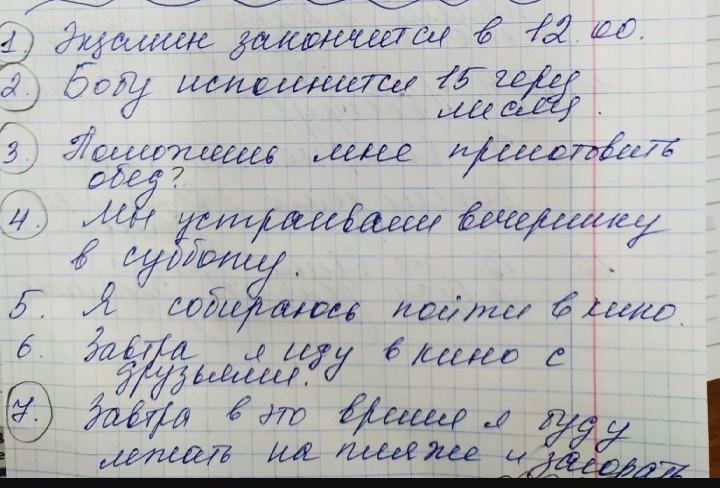 1. Экзамен закончится в 12.00.
2. Бобу исполнится 15 через
месяц.
3. Поможешь мне приготовить
обед?
4. Мы устраиваем вечеринку
в субботу.
5. Я собираюсь пойти в кино.
6. Завтра я иду в кино с
друзьями.
7. Завтра в это время я буду
лежать на пляже и загорать